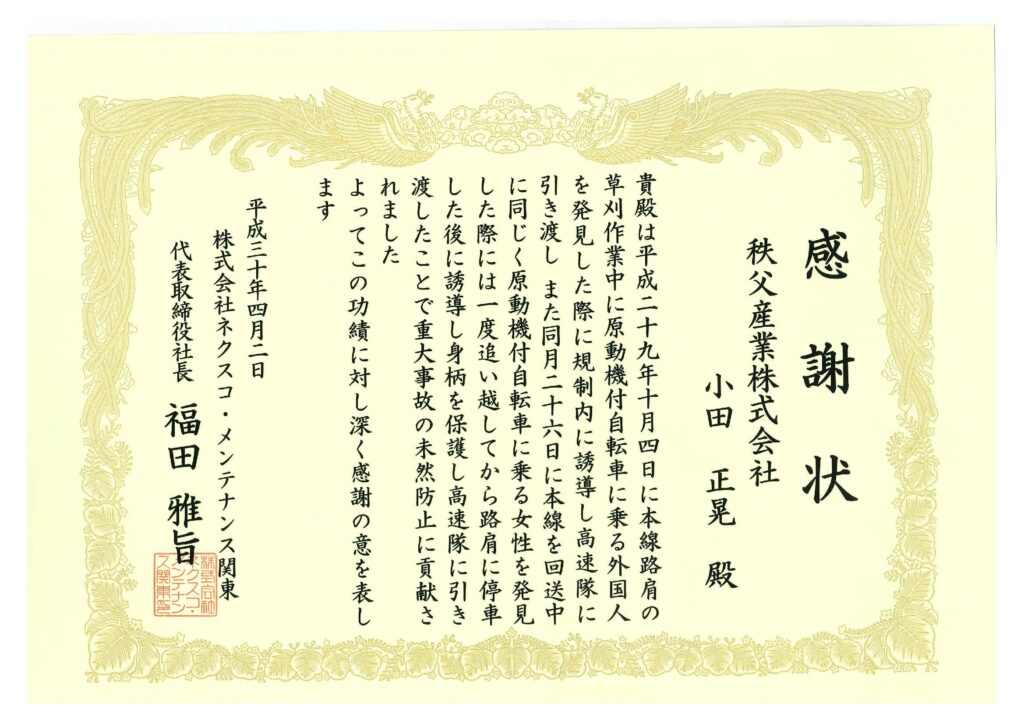 感謝状
秩父産業株式会社
小田 正晃 殿
貴殿は平成二十九年十月四日に本線路肩の
草刈作業中に原動機付自転車に乗る外国人
を発見した際に規制内に誘導し高速隊に
引き渡し また同月二十六日に本線を回送中
に同じく原動機付自転車に乗る女性を発見
した際には一度追い越してから路肩に停車
した後に誘導し身柄を保護し高速隊に引き
渡したことで重大事故の未然防止に貢献さ
れました
よってこの功績に対し深く感謝の意を表し
ます
平成三十年四月二日
株式会社ネクスコ・メンテナンス関東
代表取締役社長 福田 雅旨
株式会社
ネクスコ・
メンテナン
ス関東印